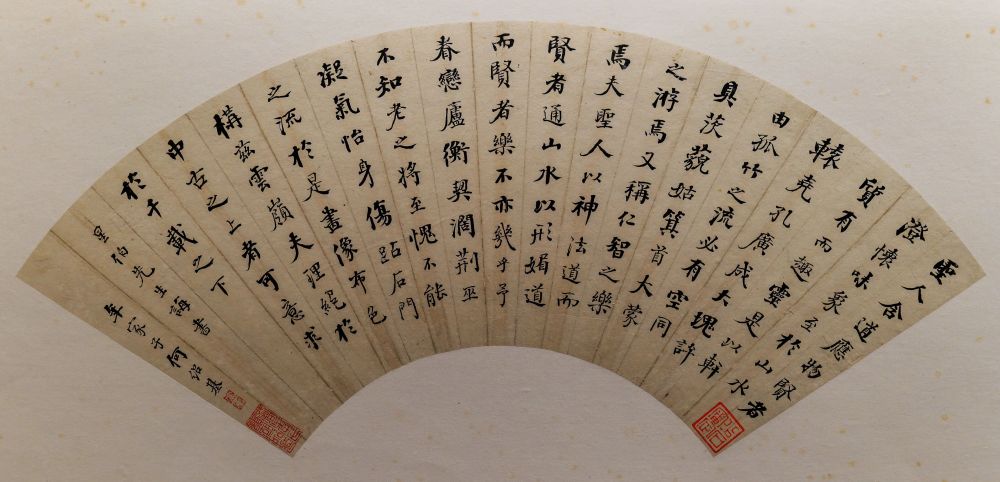 聖人含道應物賢者
澄懷味象至於山水
質有而趣靈是以軒
轅堯孔廣成大瑰許
由孤竹之流必有空同
具茨藐姑箕首大蒙
之游焉又稱仁智之樂
焉夫聖人以神法道而
賢者通山水以形媚道
而賢者樂不亦幾乎予
眷戀廬衡契闊荊巫
不知老之將至愧不能
凝氣怡身傷跕石門
之流於是畫像布色
構茲雲嶺夫理絕於
中古之上者可意求
於千載之下
星伯先生誨書
年家子何紹基